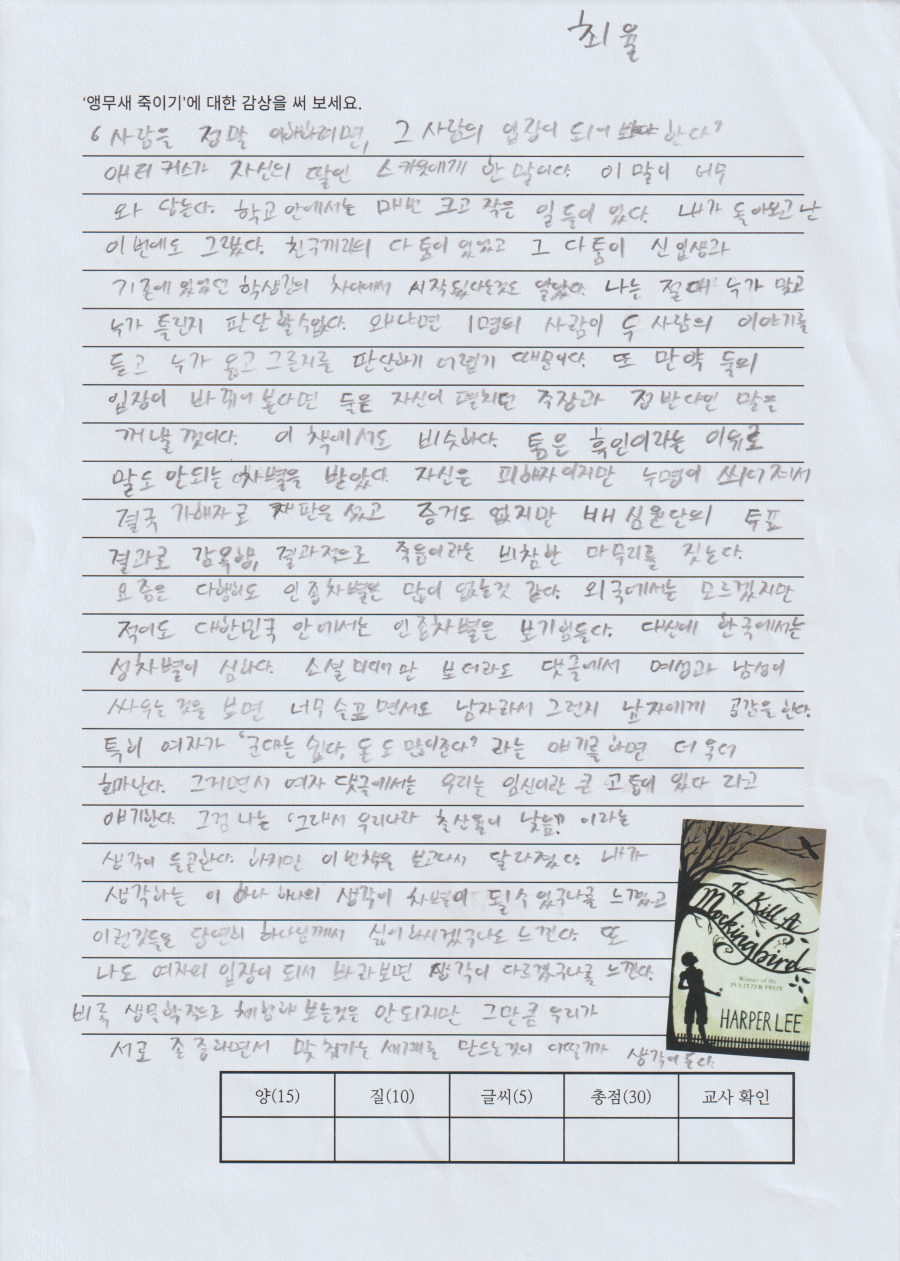 최율
'앵무새 죽이기'에 대한 감상을 써 보세요.
6 사람을 정말 이해하려면, 그 사람의 입장이 되어 봐야 한다?
애티커스가 자신의 딸인 스카웃에게 한 말이다. 이 말이 너무
와 닿는다. 학교 안에서는 매번 크고 작은 일들이 있다. 내가 돌아오고 난
이번에도 그랬다. 친국끼리의 다툼이 있었고 그 다툼이 신입생과
기존에 있었던 학생간의 차이에서 시작됬다는것도 알았다. 나는 절대 누가 맞고
누가 틀린지 판단할수없다. 왜냐면 1명의 사람이 두 사람의 이야기를
듣고 누가 옳고 그른지를 판단하기 어렵기 때문이다. 또 만약 둘의
입장이 바뀌어 본다면 둘은 자신이 펼치던 주장과 정반다인 말을
꺼낼 것이다. 이 책에서도 비슷하다. 톰은 흑인이라는 이유로
말도 안되는 차별을 받았다. 자신은 피해자이지만 누명이 씌어져서
결국 가해자로 재판을 섰고 증거도 없지만 배심원단의 투표
결과로 감옥행, 결과적으로 죽음이라는 비참한 마무리를 짓는다.
요즘은 다행히도 인종차별은 많이 없는것 같다. 외국에서는 모르겠지만
적어도 대한민국 안에서는 인종차별은 보기힘들다. 대신에 한국에서는
성차별이 심하다. 소셜 미디어만 보더라도 댓글에서 여성과 남성이
싸우는 것을 보면 너무 슬프면서도 남자라서 그런지 남자에게 공감을 한다.
특히 여자가 '군대는 쉽다, 돈도 많이준다' 라는 얘기를 하면 더욱더
화가난다. 그러면서 여자 댓글에서는 우리는 임신이란 큰 고통이 있다 라고
얘기한다. 그럼 나는 '그래서 우리나라 출산율이 낮음?' 이라는
생각이 들곤한다. 하지만 이번책을 보고나서 달라졌다. 내가
생각하는 이 하나 하나의 생각이 차별이 될수 있구나를 느꼈고
이런것들을 당연히 하나님께서 싫어하시겠구나도 느낀다. 또
나도 여자의 입장이 되서 바라보면 생각이 다르겠구나를 느낀다.
비록 생물학적으로 체험해 보는것은 안되지만 그만큼 우리가
서로 존중하면서 맞춰가는 세계를 만드는것이 어떨까 생각이 든다.
To Kill A
Mockingbird
Winner of the
PULITZER PRIZE
HARPER LEE
양(15) 질(10) 글씨(5) 총점(30) 교사 확인